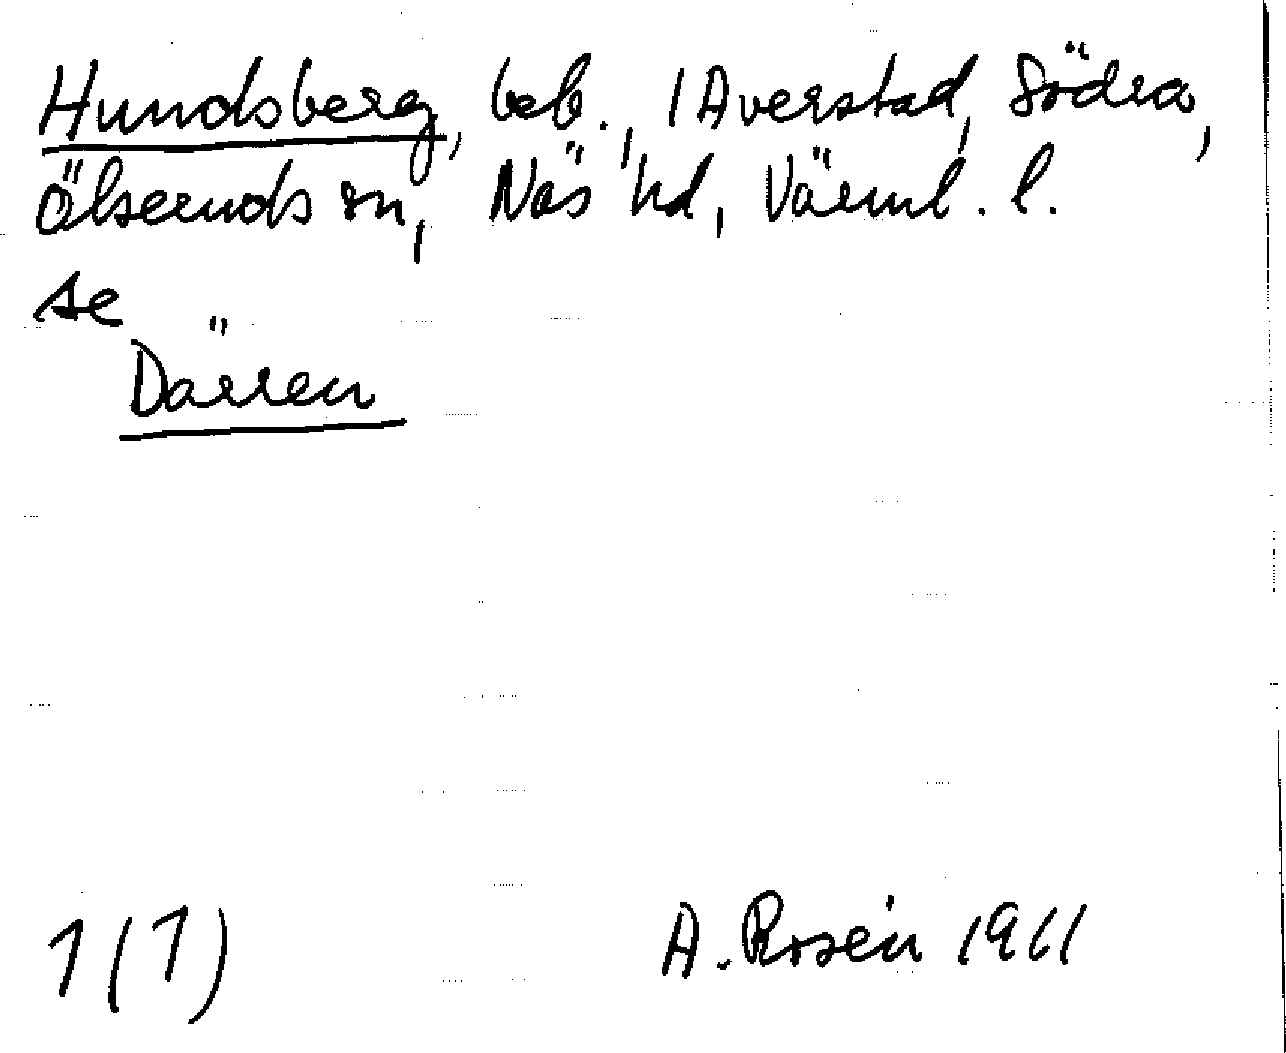 Hundsberg, beb., /Averstad, Södra,
Ölseruds sn, Näs hd, Värml. l.
se
Därren
1(1)
A. Rosén 1911